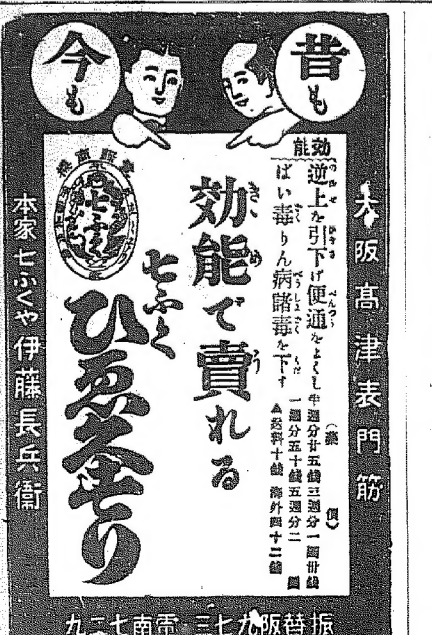 昔も
今も
大阪高津表門筋
効能
逆上を引下げ便通をよくし
ばい毒りん病諸毒を下す
(薬價)
半週分廿五銭三週分一圓卅銭
一週分五十銭五週分二圓
▲送料十銭 海外四十二銭
効能で賣れる
七ふく
ひゑぐすり
本家七ふくや伊藤長兵衞
振替阪九七三・電南七二九